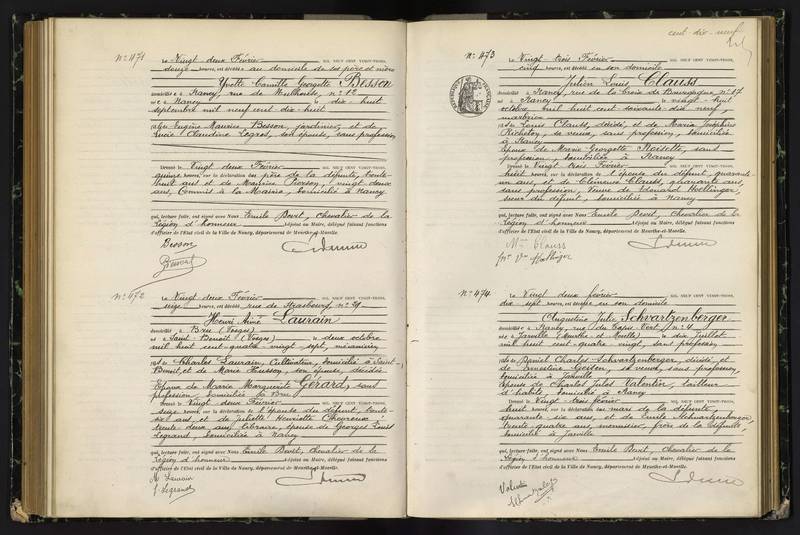 N° 471
Le Vingt deux Février MIL NEUF CENT VINGT-TROIS,
douze heures, est décédée au domicile de ses père et mère
Yvette Camille Georgette Besson
domiciliée à Nancy, rue de Mulhouse, n° 12
née à Nancy le dix-huit
septembre mil neuf cent dix-huit
fille de Eugène Maurice Besson, jardinier, et de
Lucie Claudine Legros, son épouse, sans profession
Dressé le Vingt deux Février MIL NEUF CENT VINGT-TROIS,
quinze heures, sur la déclaration du père de la défunte, trente
huit ans et de Maurice Pierson, vingt deux
ans, Commis à la Mairie, domicilié à Nancy
qui, lecture faite, ont signé avec Nous Emile Bovit, Chevalier de la
Légion d'honneur adjoint au Maire, délégué faisant fonctions
d'officier de l'État civil de la Ville de Nancy, département de Meurthe-et-Moselle.
Besson
N° 472
Le Vingt deux Février MIL NEUF CENT VINGT-TROIS,
seize heures, est décédé rue de Strasbourg, n° 39
Henri Aimé Laurain
domicilié à Bru (Vosges)
né à Saint Benoit (Vosges) le deux octobre
mil huit cent quatre vingt-sept, mécanicien
fils de Charles Laurain, Cultivateur, domicilié à Saint-
Benoit, et de Marie Husson, son épouse, décédée
Epoux de Marie Marguerite Gérard, sans
profession, domiciliée à Bru
Dressé le Vingt deux Février MIL NEUF CENT VINGT-TROIS,
seize heures, sur la déclaration de l'épouse du défunt, trente
six ans, et de Juliette Henriette Chevreux
trente deux ans, libraire, épouse de Georges Louis
Legrand, domiciliée à Nancy
qui, lecture faite, ont signé avec Nous Emile Bovit, Chevalier de la
Légion d'honneur adjoint au Maire, délégué faisant fonctions
d'officier de l'État civil de la Ville de Nancy, département de Meurthe-et-Moselle.
M Laurain
J. Legrand
cent-dix-neuf
N° 473
Le Vingt trois Février MIL NEUF CENT VINGT-TROIS,
cinq heures, est décédé en son domicile
Julien Louis Clauss
domicilié à Nancy, rue de la Croix de Bourgogne, n° 17
né à Nancy le vingt-huit
octobre mil huit cent soixante-dix neuf,
marbrier
fils de Louis Clauss, décédé, et de Marie Joséphine
Richetoy, sa veuve, sans profession, domiciliée
à Nancy
Epoux de Marie Georgette Noisette, sans
profession, domiciliée à Nancy
Dressé le Vingt trois Février MIL NEUF CENT VINGT-TROIS,
huit heures, sur la déclaration de l'épouse du défunt, quarante
un ans, et de Clémence Clauss, quarante ans,
sans profession, Veuve de Edouard Hollinger
sœur du défunt, domiciliée à Nancy
qui, lecture faite, ont signé avec Nous Emile Bovit, Chevalier de la
Légion d'honneur adjoint au Maire, délégué faisant fonctions
d'officier de l'État civil de la Ville de Nancy, département de Meurthe-et-Moselle.
Mme Clauss
N° 474
Le Vingt deux février MIL NEUF CENT VINGT-TROIS,
dix sept heures, est décédée en son domicile
Augustine Julie Schvartzenberger
domiciliée à Nancy, rue du Tapis Vert, n° 4
née à Jarville (Meurthe et Moselle) le dix Juillet
mil huit cent quatre vingt, sans profession
fille de Daniel Charles Schvartzenberger, décédé, et
de Ernestine sa veuve, sans profession,
domiciliée à Jarville
Epouse de Charles Jules Valentin, tailleur
d'habits, domicilié à Nancy
Dressé le Vingt trois février MIL NEUF CENT VINGT-TROIS,
huit heures, sur la déclaration du mari de la défunte,
quarante six ans, et de Emile Schvartzenberger,
trente quatre ans, menuisier, frère de la défunte,
domicilié à Jarville
qui, lecture faite, ont signé avec Nous Emile Bovit, Chevalier de la
Légion d'honneur adjoint au Maire, délégué faisant fonctions
d'officier de l'État civil de la Ville de Nancy, département de Meurthe-et-Moselle.
Valentin